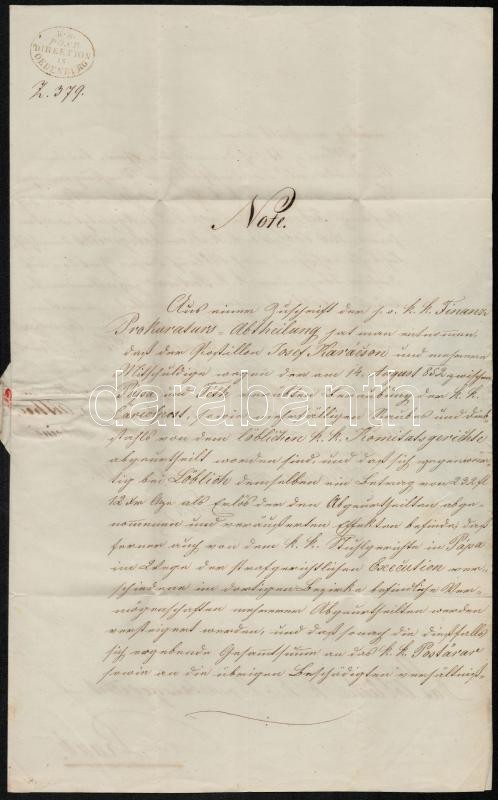 K. K.
POST
DIREKTION
IN
OEDENBURG
Z. 379.
Note.
Aus einer Zuschrift der h. o. k. k. Finanz
Prokuraturs-Abtheilung hat man entnommen,
daß der Postillon Josef Karácson und mehrere
Mitschuldige wegen der am 14. August 852 zwischen
Pápa und Téth verübten Beraubung der k. k.
Cariolpost, sowie diesfälligen Raubes und Dieb-
stahls von dem löblichen k. k. Komitatsgerichte
abgeurtheilt worden sind, und daß sich gegenwär-
tig bei Löblich demselben ein Betrag von 232 fl
12 xr als Erlös der den Abgeurtheilten abge-
nommenen und veräußerten Effekten befinde, daß
ferner auch von dem k. k. Stuhlgerichte in Pápa
im Wege der strafgerichtlichen Execution ver-
schiedene im dortigen Bezirke befindliche Ver-
mögenschaften mehrerer Abgeurtheilten werden
versteigert werden, und daß sonach die dießfalls
sich ergebende Gesammtsumme an das k. k. Postärar
sowie an die übrigen Beschädigten verhältniß-
darabanth.com